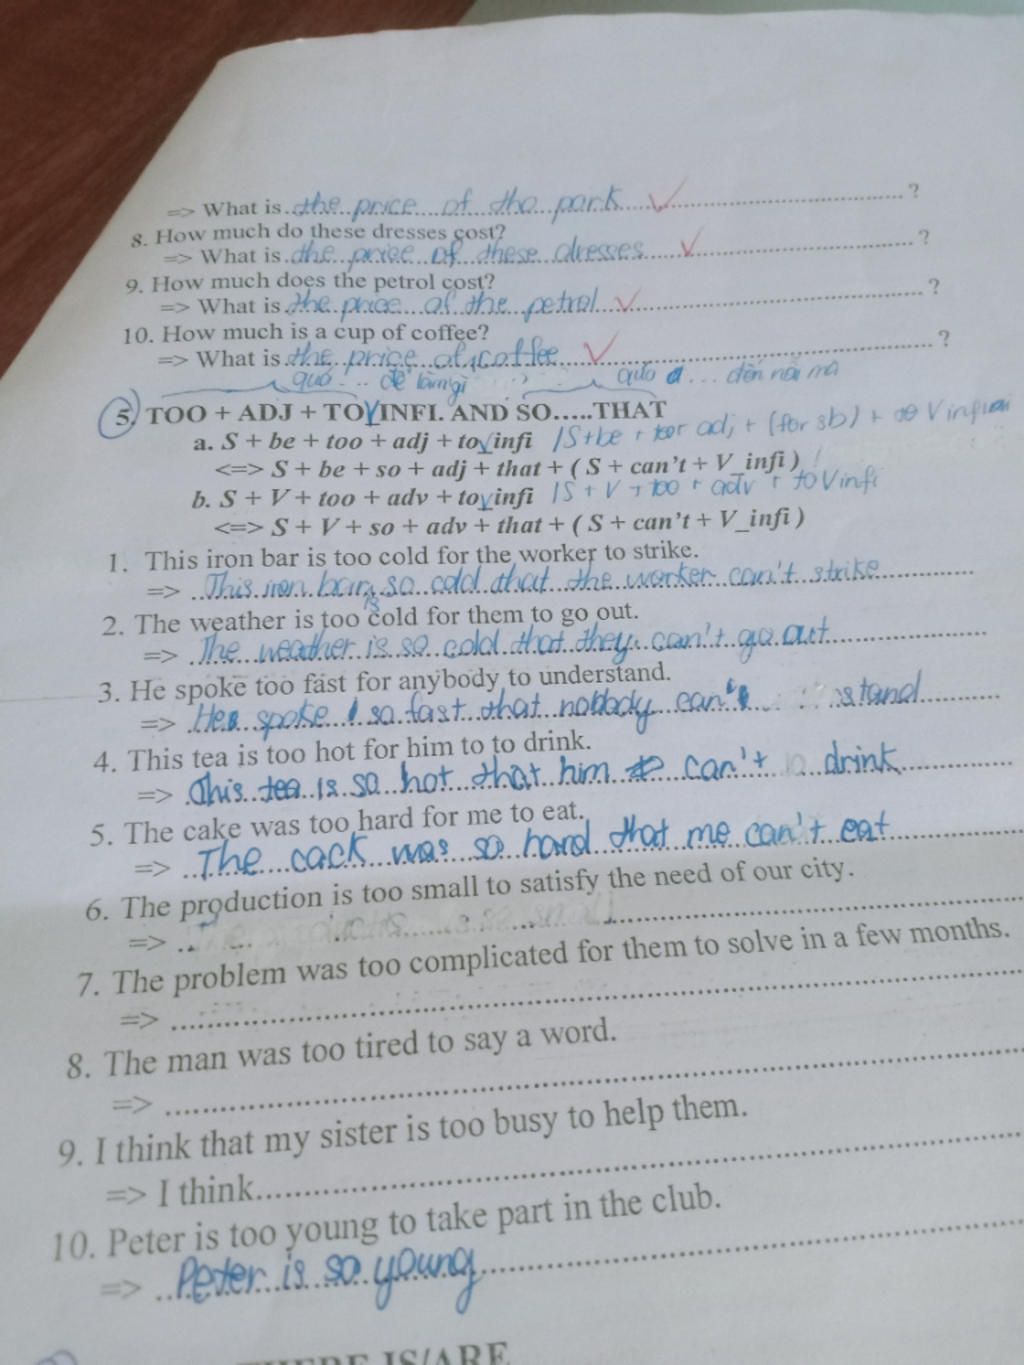 => What is the price of the park ?
8. How much do these dresses cost?
=> What is the price of these dresses ?
9. How much does the petrol cost?
=> What is the price of the petrol ?
10. How much is a cup of coffee?
=> What is the price of coffee ?
quá ... để làm gì quá ... đến nỗi mà
5. TOO + ADJ + TO V INFI. AND SO.....THAT
a. S + be + too + adj + to v infi / S + be + too adj + (for sb) + to V infi
<=> S + be + so + adj + that + ( S + can't + V_infi )
b. S + V + too + adv + to v infi / S + V + too + adv + to V infi
<=> S + V + so + adv + that + ( S + can't + V_infi )
1. This iron bar is too cold for the worker to strike.
=> This iron bar is so cold that the worker can't strike
2. The weather is too cold for them to go out.
=> The weather is so cold that they can't go out
3. He spoke too fast for anybody to understand.
=> He spoke so fast that nobody can stand
4. This tea is too hot for him to to drink.
=> This tea is so hot that him can't drink
5. The cake was too hard for me to eat.
=> The cack was so hard that me can't eat
6. The production is too small to satisfy the need of our city.
=>
7. The problem was too complicated for them to solve in a few months.
=>
8. The man was too tired to say a word.
=>
9. I think that my sister is too busy to help them.
=> I think
10. Peter is too young to take part in the club.
=> Peter is so young
THERE IS/ARE